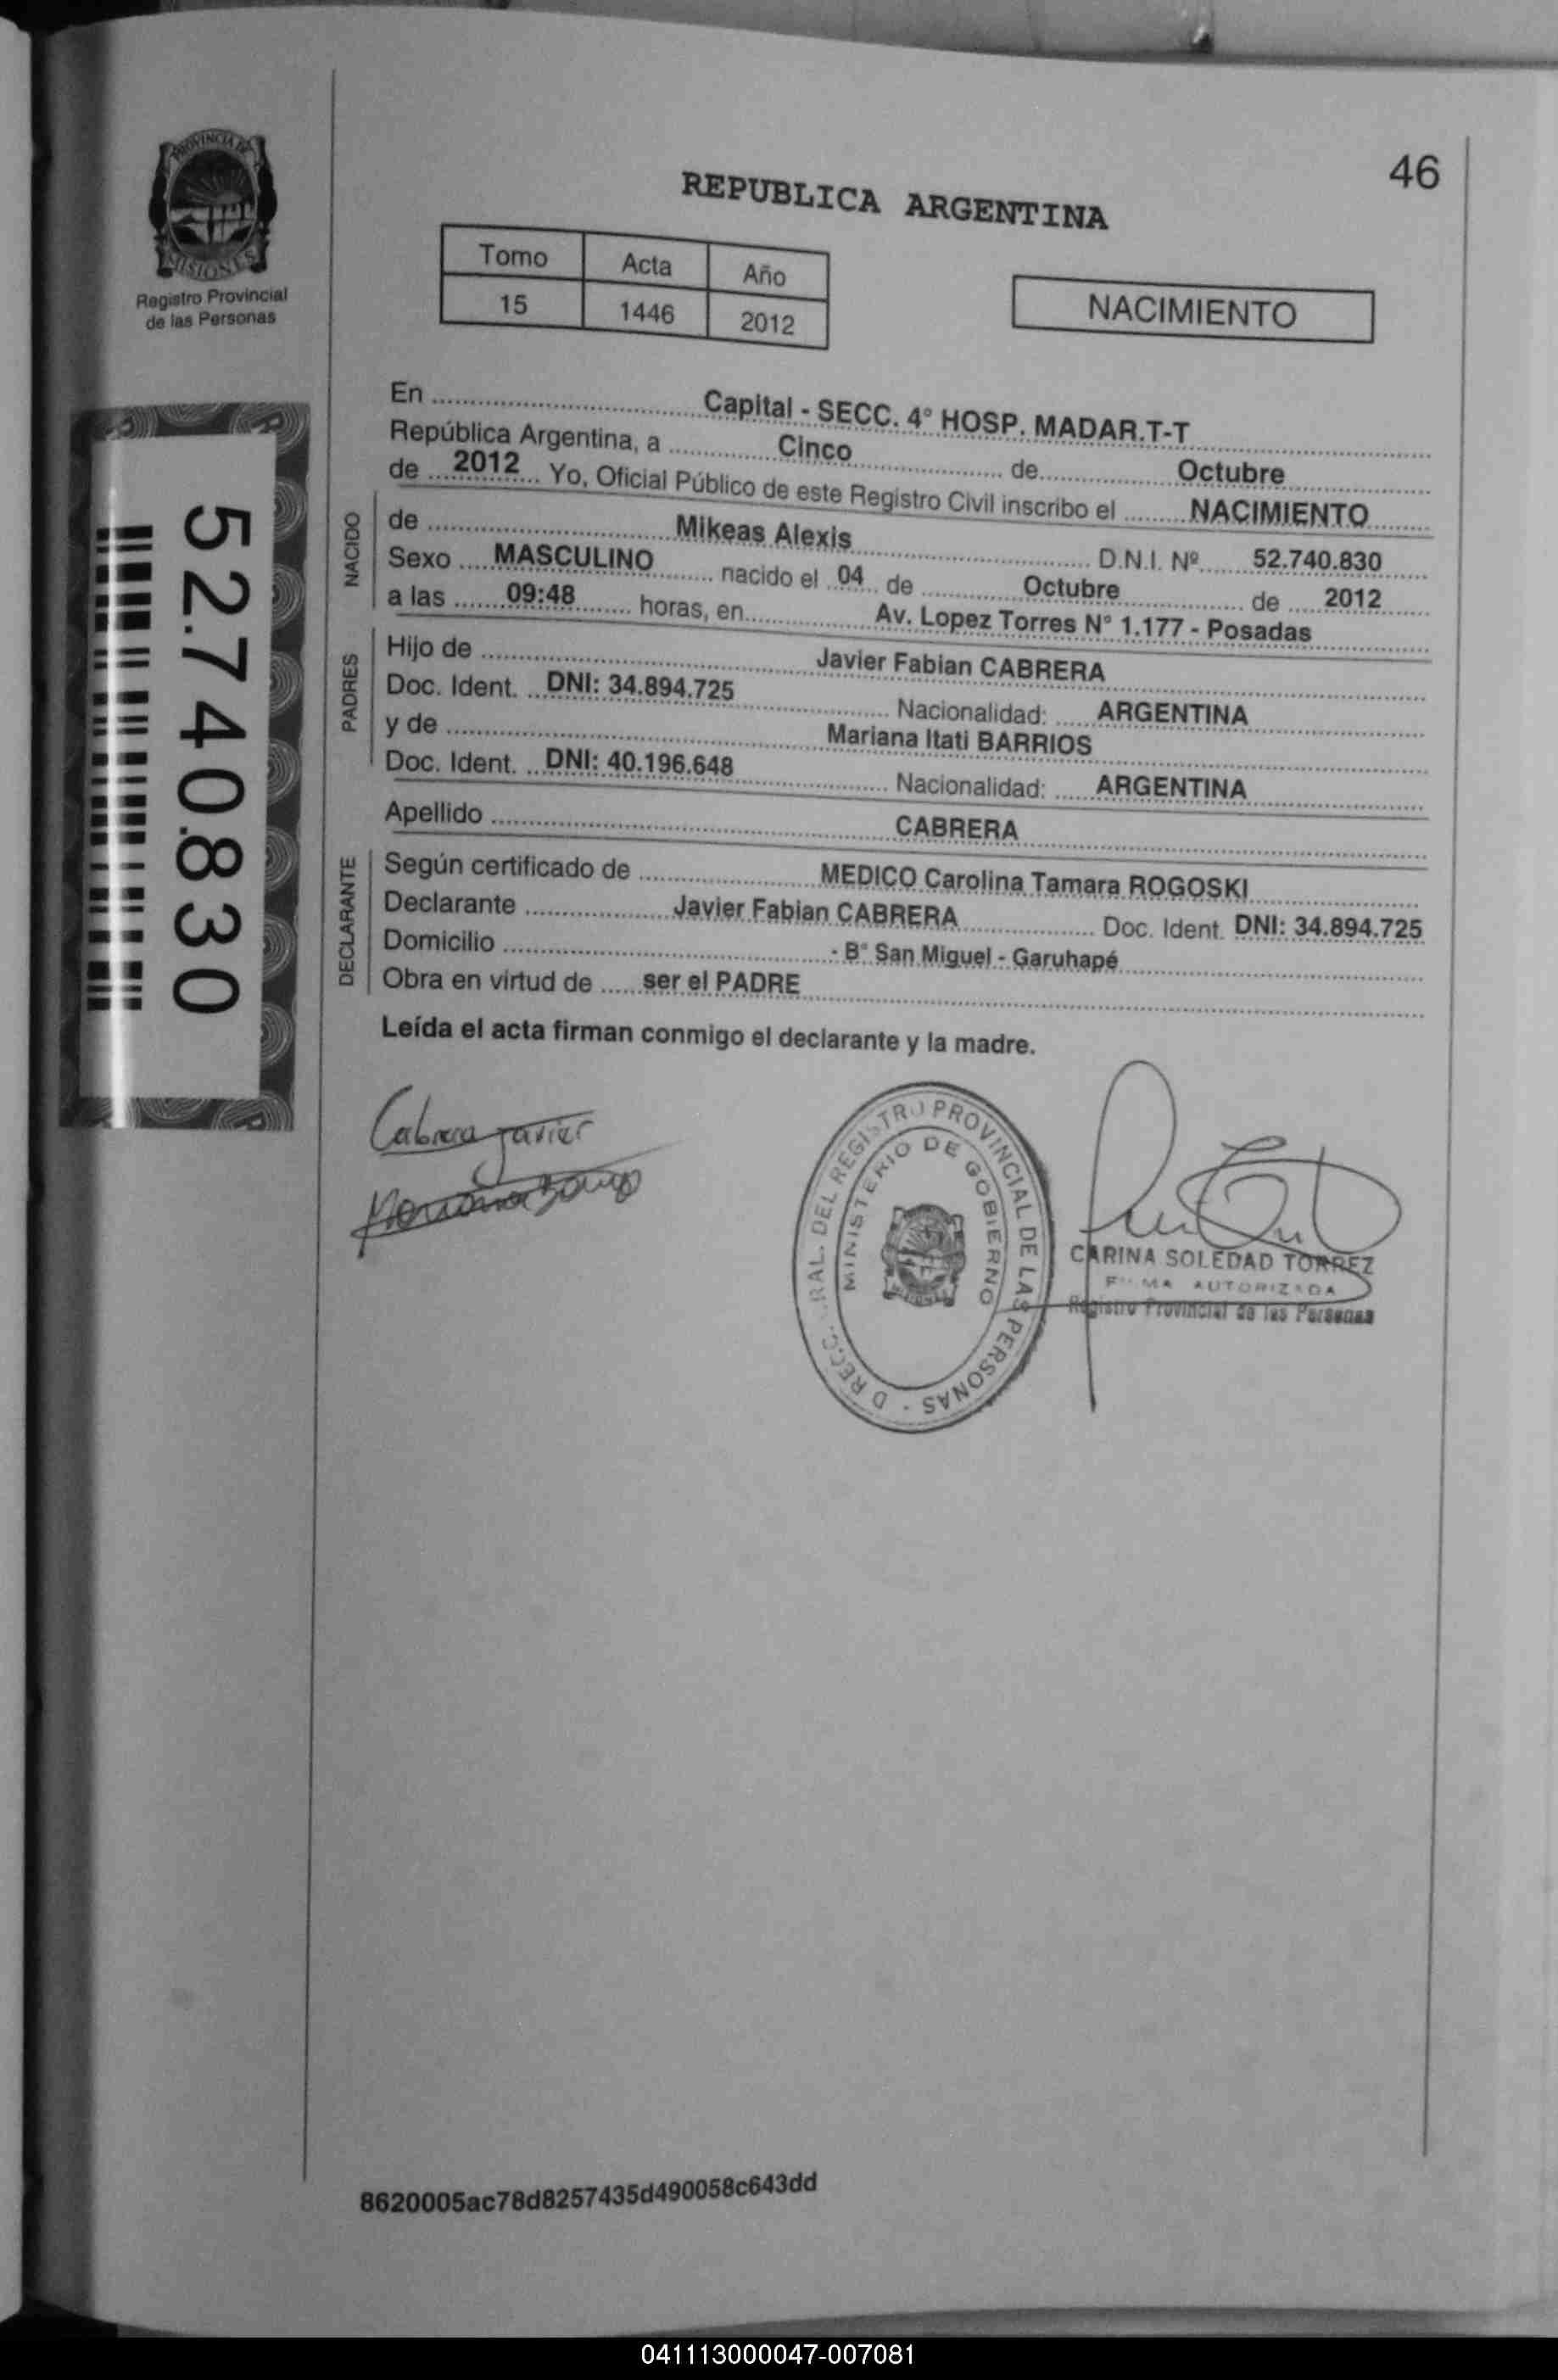 46
PROVINCIA DE
MISIONES
Registro Provincial
de las Personas
REPUBLICA ARGENTINA
Tomo Acta Año
15 1446 2012
NACIMIENTO
52.740.830
En Capital - SECC. 4° HOSP. MADAR.T-T
República Argentina, a Cinco de Octubre
de 2012 Yo, Oficial Público de este Registro Civil inscribo el NACIMIENTO
NACIDO
de Mikeas Alexis D.N.I. Nº 52.740.830
Sexo MASCULINO nacido el 04 de Octubre de 2012
a las 09:48 horas, en Av. Lopez Torres N° 1.177 - Posadas
PADRES
Hijo de Javier Fabian CABRERA
Doc. Ident. DNI: 34.894.725 Nacionalidad: ARGENTINA
y de Mariana Itati BARRIOS
Doc. Ident. DNI: 40.196.648 Nacionalidad: ARGENTINA
Apellido CABRERA
DECLARANTE
Según certificado de MEDICO Carolina Tamara ROGOSKI
Declarante Javier Fabian CABRERA Doc. Ident. DNI: 34.894.725
Domicilio - B° San Miguel - Garuhapé
Obra en virtud de ser el PADRE
Leída el acta firman conmigo el declarante y la madre.
Cabrera Javier
RAL. DEL REGISTRO PROVINCIAL DE LAS PERSONAS -
MINISTERIO DE GOBIERNO
CARINA SOLEDAD TORREZ
FIRMA AUTORIZADA
Registro Provincial de las Personas
8620005ac78d8257435d490058c643dd
041113000047-007081